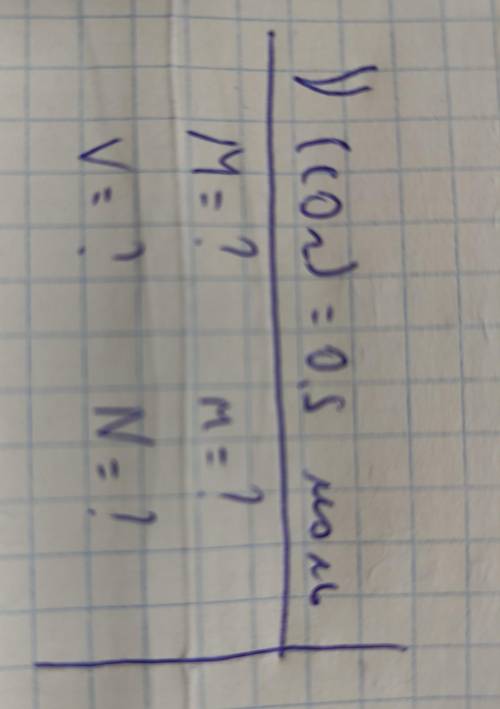 ν (CO2) = 0,5 моль
M = ? m = ?
V = ? N = ?